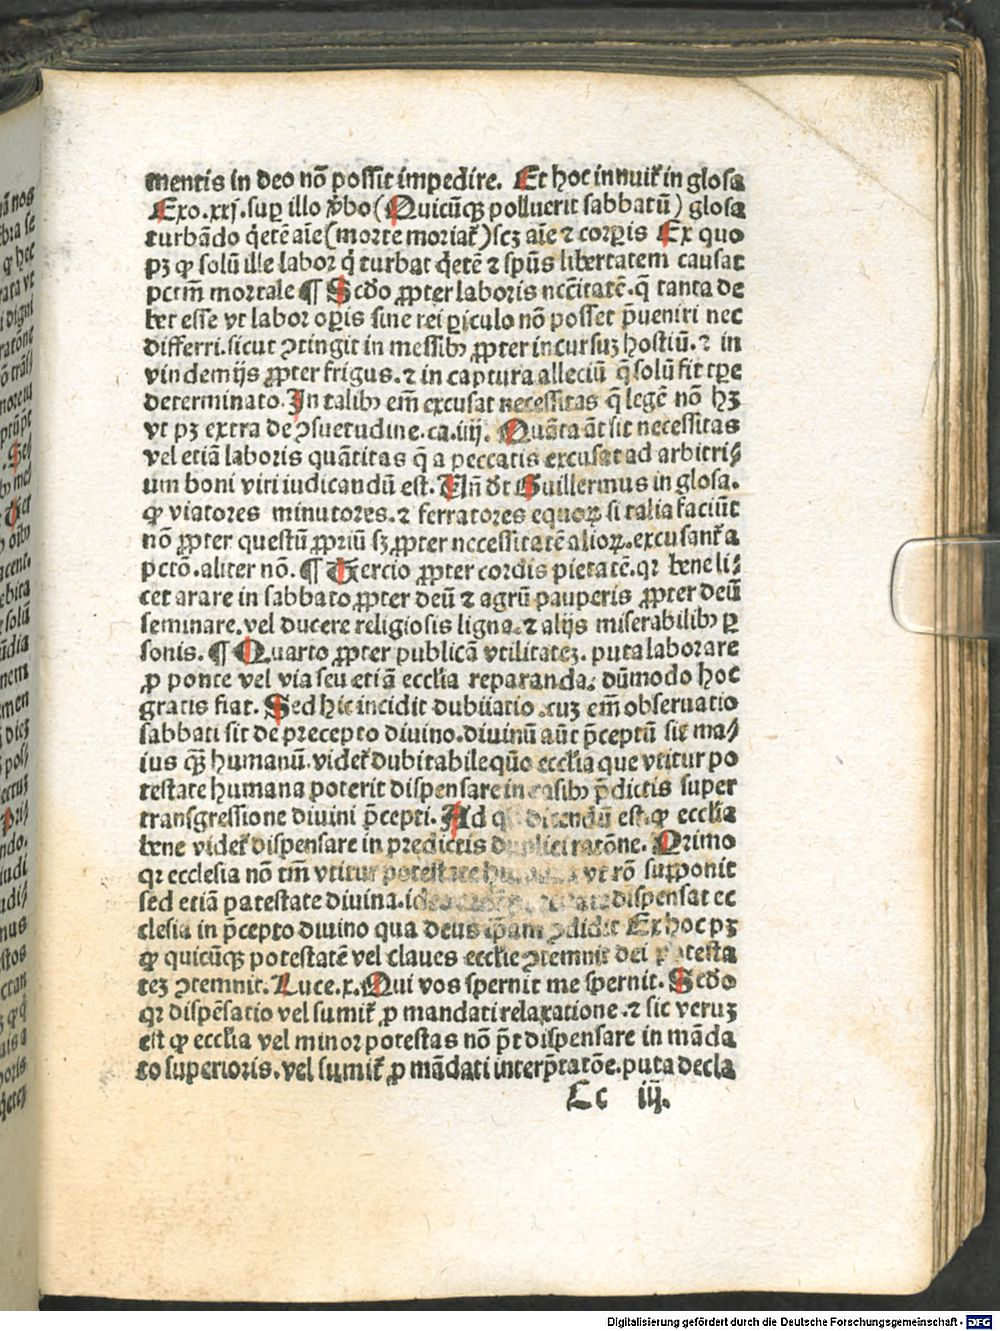 mentis in deo nõ possit impedire. Et hoc innuit̃ in glosa
Exo.xxj.suꝑ illo v̓bo(Quicũqꝫ polluerit sabbatũ) glosa
turbãdo q̓etẽ aĩe(morte moriat̃)scꝫ aĩe ⁊ corꝑis Ex quo
pꝫ ꝙ solũ ille labor q̓ turbat q̓etẽ ⁊ spũs libertatem causat
pctm̃ mortale ¶ Scd̃o ꝓpter laboris nccĩtatẽ.q̃ tanta de
bet esse vt labor oꝑis sine rei ꝑiculo nõ posset p̃ueniri nec
differri.sicut ꝯtingit in messibꝰ ꝓpter incursuꝫ hostiũ.⁊ in
vindemijs ꝓpter frigus.⁊ in captura alleciũ q̃ solũ fit tꝑe
determinato.In talibꝰ em̃ excusat necessitas q̃ legẽ nõ hꝫ
vt pꝫ extra de ꝯsuetudine.ca.iiij. Quãta ãt sit necessitas
vel etiã laboris quãtitas q̃ a peccatis excusat ad arbitri⸗
um boni viri iudicandũ est. Vñ dt̃ Guillermus in glosa.
ꝙ viatores minutores.⁊ ferratores equoꝝ si talia faciũt
nõ ꝓpter questũ ꝓpriũ sꝫ ꝓpter necessitatẽ alioꝝ.excusant̃ a
pctõ.aliter nõ. ¶ Tercio ꝓpter cordis pietatẽ.qꝛ bene li⸗
cet arare in sabbato ꝓpter deũ ⁊ agrũ pauperis ꝓpter deũ
seminare.vel ducere religiosis ligna.⁊ alijs miserabilibꝰ ꝑ
sonis. ¶ Quarto ꝓpter publicã vtilitateꝫ.puta laborare
ꝓ ponte vel via seu etiã eccl̃ia reparanda. dũmodo hoc
gratis fiat. Sed hic incidit dubitatio .cuꝫ em̃ obseruatio
sabbati sit de precepto diuino.diuinũ aũt p̃ceptũ sit ma⸗
ius qꝫ̃ humanũ.videt̃ dubitabile quõ eccl̃ia que vtitur po
testate humana poterit dispensare in casibꝰ p̃dictis super
transgressione diuini p̃cepti. Ad qͥ dicendũ est.ꝙ eccl̃ia
bene videt̃ dispensare in predictis duplici ratõne. Primo
qꝛ ecclesia nõ tm̃ vtitur potestate humana vt rõ supponit
sed etiã patestate diuina. dispensat ec
clesia in p̃cepto diuino qua deus ip̃am ꝯdidit Ex hoc pꝫ
ꝙ quicũqꝫ potestatẽ vel claues eccl̃ie ꝯtemnit dei potesta
teꝫ ꝯtemnit. Luce.x. Qui vos spernit me spernit. Scd̃o
qꝛ dispẽsatio vel sumit̃ ꝓ mandati relaxatione.⁊ sic veruꝫ
est ꝙ eccl̃ia vel minor potestas nõ p̃t dispensare in mãda
to superioris.vel sumit̃ ꝓ mãdati interp̃tatõe.puta decla
Cc iij.
Digitalisierung gefördert durch die Deutsche Forschungsgemeinschaft - DFG